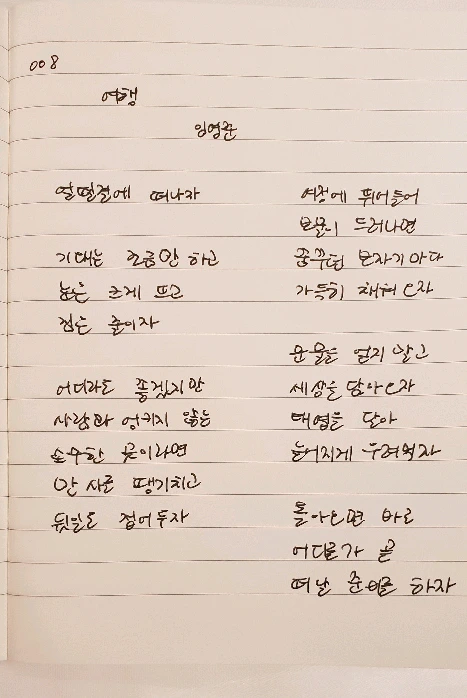 008
여행
임영준
얼떨결에 떠나자
기대는 조금만 하고
눈은 크게 뜨고
짐은 줄이자
어디라도 좋겠지만
사람과 엉키지 않는
순수한 곳이라면
만사를 팽개치고
뒷일도 접어두자
여정에 뛰어들어
드러나면
꿈꾸던 보자기마다
가득히 채워오자
운을 떼지 말고
세상을 담아오자
태엽을 달아
늘어지게 우려먹자
돌아오면 바로
어디론가 곧
떠날 준비를 하자